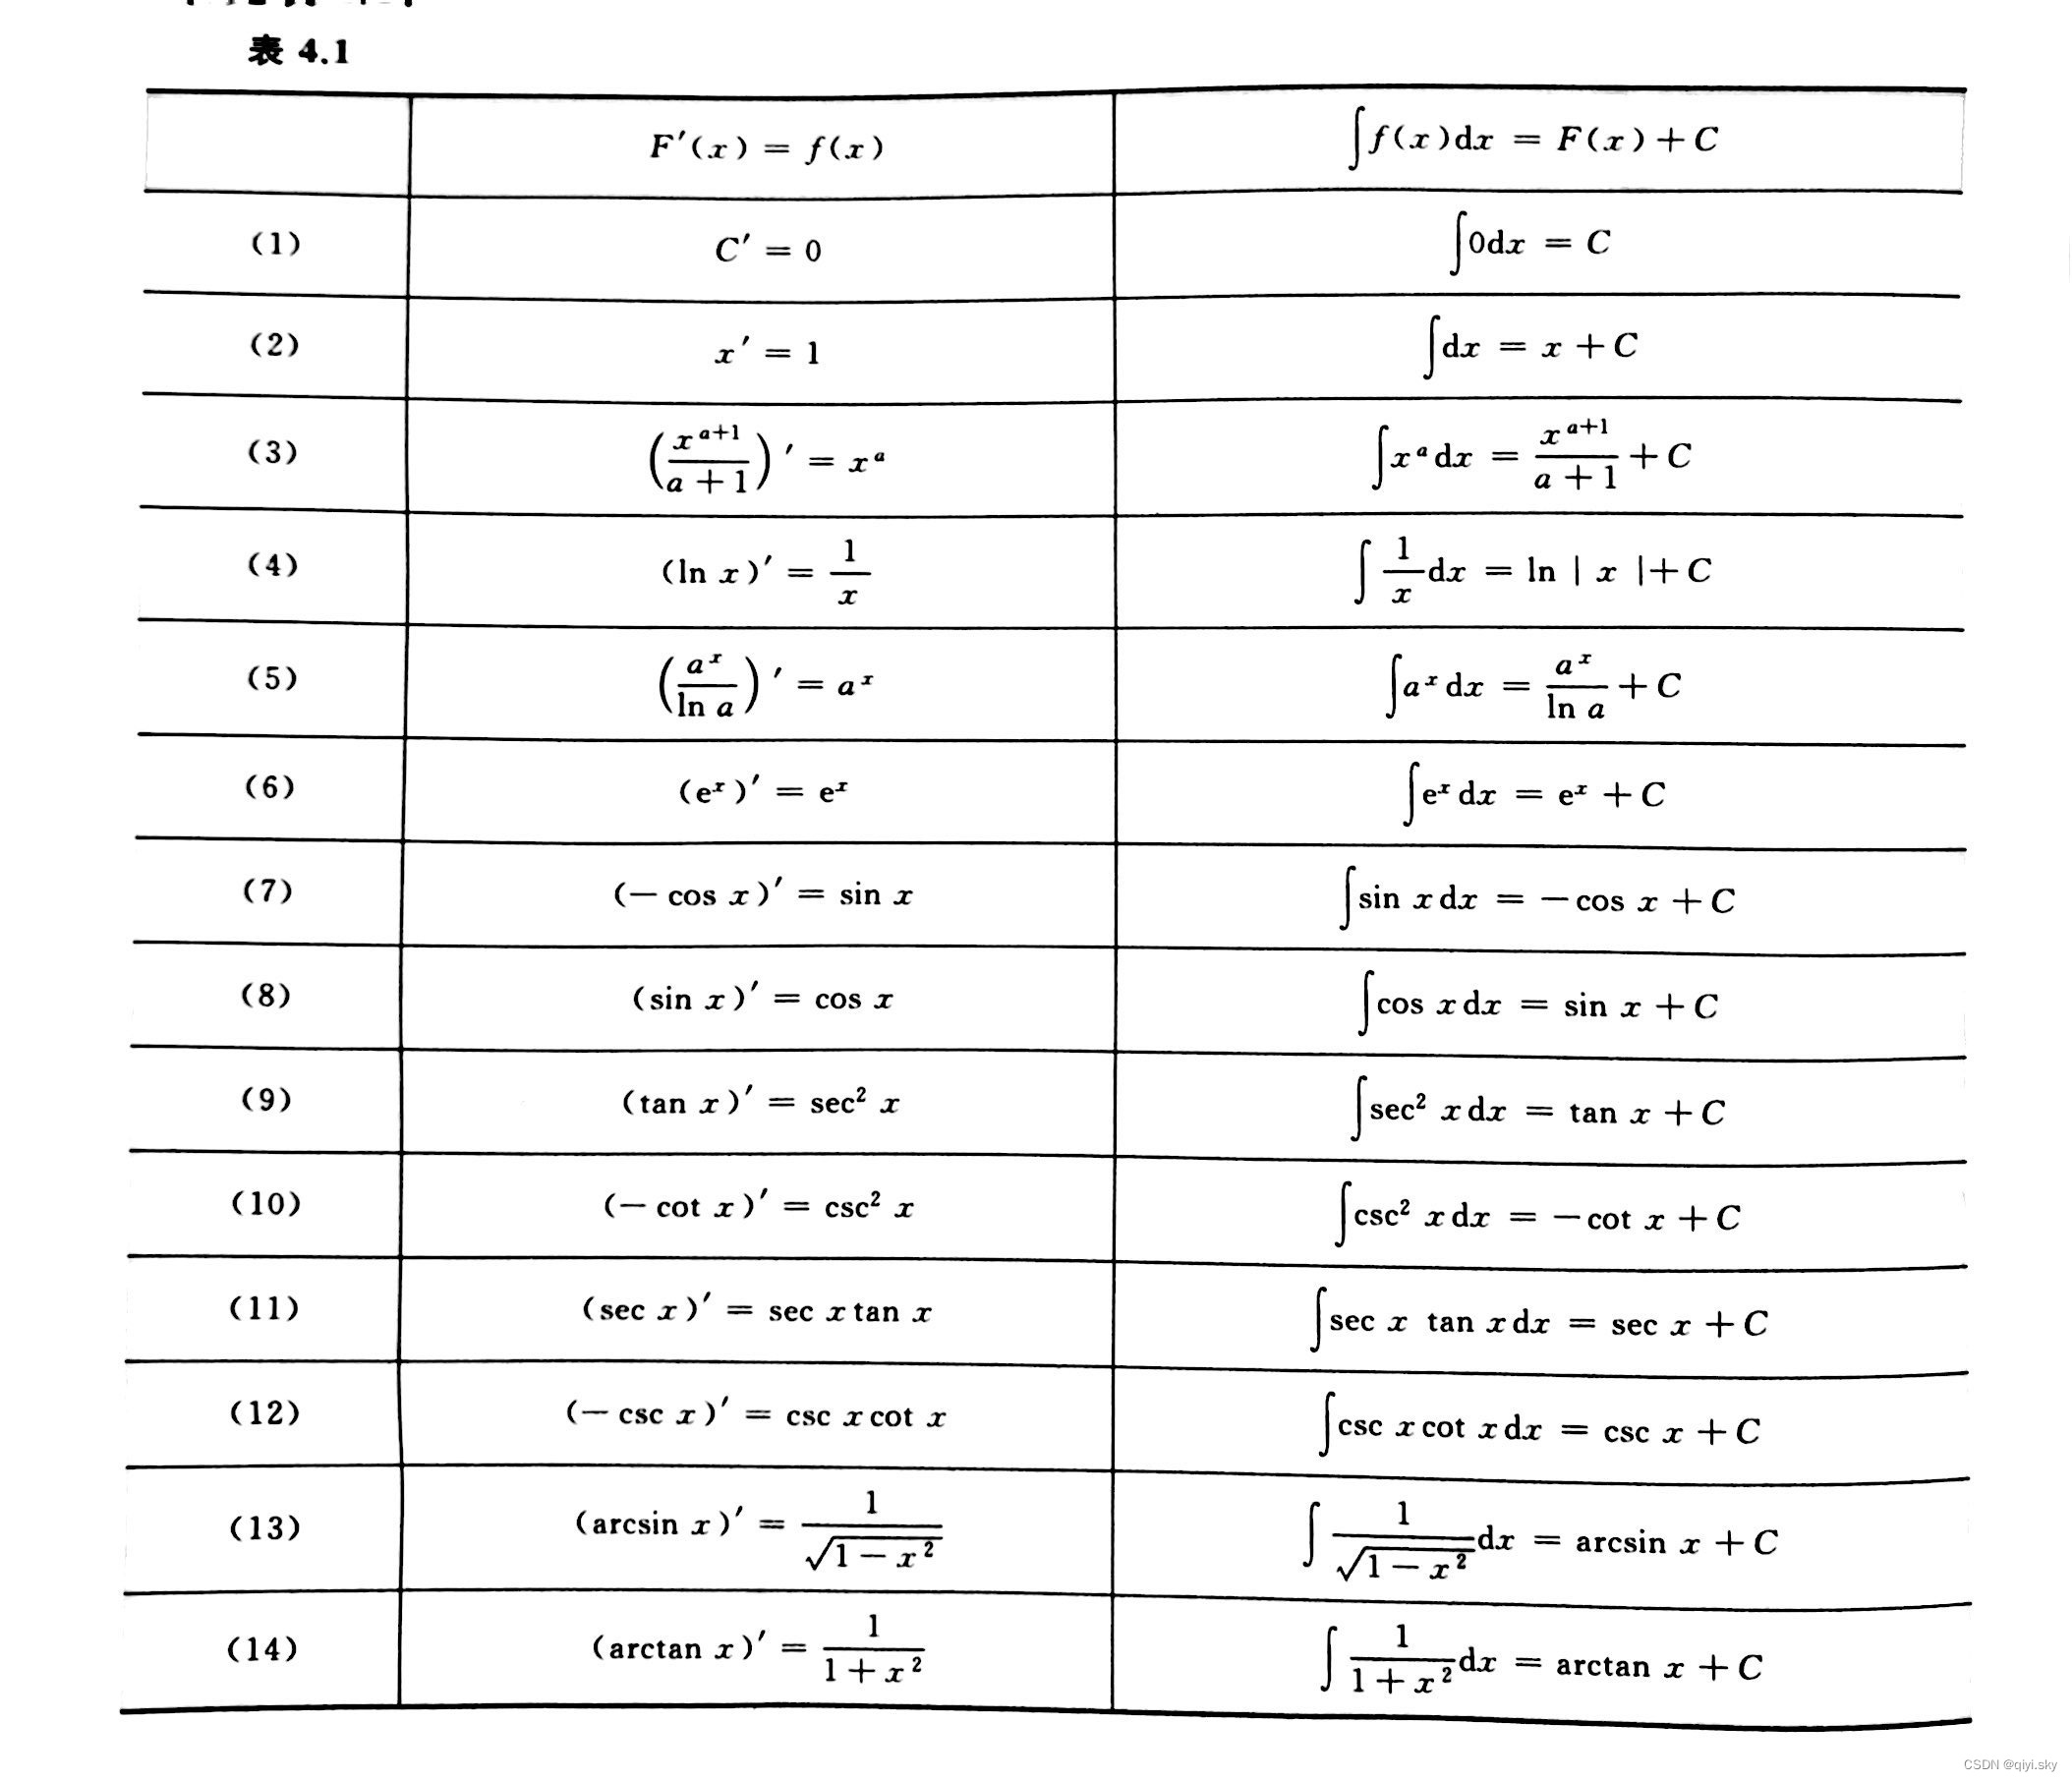 表 4.1
F′(x) = f(x) ∫f(x)dx = F(x)+C
(1) C′ = 0 ∫0dx = C
(2) x′ = 1 ∫dx = x+C
(3) (x^{a+1}/(a+1))′ = x^a ∫x^a dx = x^{a+1}/(a+1)+C
(4) (ln x)′ = 1/x ∫1/x dx = ln | x |+C
(5) (a^x/ln a)′ = a^x ∫a^x dx = a^x/ln a+C
(6) (e^x)′ = e^x ∫e^x dx = e^x+C
(7) (− cos x)′ = sin x ∫sin x dx = −cos x+C
(8) (sin x)′ = cos x ∫cos x dx = sin x+C
(9) (tan x)′ = sec² x ∫sec² x dx = tan x+C
(10) (− cot x)′ = csc² x ∫csc² x dx = −cot x+C
(11) (sec x)′ = sec x tan x ∫sec x tan x dx = sec x+C
(12) (− csc x)′ = csc x cot x ∫csc x cot x dx = csc x+C
(13) (arcsin x)′ = 1/√(1−x²) ∫1/√(1−x²) dx = arcsin x+C
(14) (arctan x)′ = 1/(1+x²) ∫1/(1+x²) dx = arctan x+C
CSDN @qiyi.sky